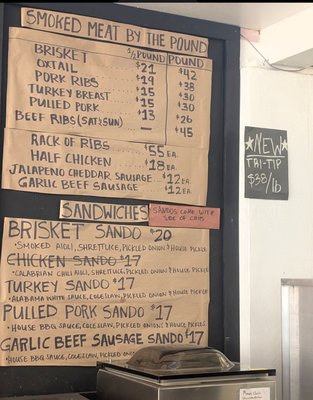 SMOKED MEAT BY THE POUND
½ POUND POUND
BRISKET $21 $42
OXTAIL $19 $38
PORK RIBS $15 $30
TURKEY BREAST $15 $30
PULLED PORK $13 $26
BEEF RIBS (SAT & SUN) — $45
RACK OF RIBS $55 EA.
HALF CHICKEN $18 EA.
JALAPENO CHEDDAR SAUSAGE $12 EA.
GARLIC BEEF SAUSAGE $12 EA.
SANDWICHES
SANDOS COME WITH
SIDE OF CHIPS
BRISKET SANDO $20
- SMOKED AIOLI, SHRETTUCE, PICKLED ONION & HOUSE PICKLE
CHICKEN SANDO $17
- CALABRIAN CHILI AIOLI, SHRETTUCE, PICKLED ONION & HOUSE PICKLE
TURKEY SANDO $17
- ALABAMA WHITE SAUCE, COLESLAW, PICKLED ONION & HOUSE PICKLE
PULLED PORK SANDO $17
- HOUSE BBQ SAUCE, COLESLAW, PICKLED ONIONS & HOUSE PICKLE
GARLIC BEEF SAUSAGE SANDO $17
- HOUSE BBQ SAUCE, COLESLAW, PICKLED ONION &
NEW
TRI-TIP
$38/lb